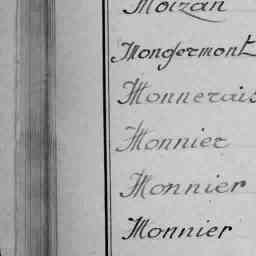 Moizan
Mongermont
Monnerais
Monnier
Monnier
Monnier